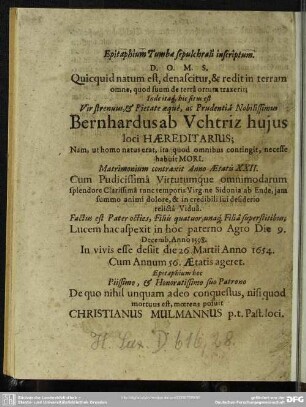 Epitaphium Tumbæ sepulchrali inscriptum.
D. O. M. S.
Quicquid natum est, denascitur, & redit in terram
omne, quod suum de terrâ ortum traxerit;
Inde itaq; hic situs est
Vir strenuus, & Pietate æquè, ac Prudentiâ Nobilissimus
Bernhardus ab Vchtriz hujus
loci HÆREDITARIUS;
Nam, ut homo natus erat, ita quod omnibus contingit, necesse
habuit MORI.
Matrimonium contraxit Anno Ætatis XXII.
Cum Pudicissimâ Virtutumque omnimodarum
splendore Clarissimâ tunc temporis Virgine Sidonia ab Ende, jam
summo animi dolore, & incredibili sui desiderio
relictâ Viduâ.
Factus est Pater octies, Filiis quatuor, unaq; Filiâ superstitibus,
Lucem hac aspexit in hoc paterno Agro Die 9.
Decemb. Anno 1598.
In vivis esse desiit die 26. Martii Anno 1654.
Cum Annum 56. Ætatis ageret.
Epitaphium hoc
Piissimo, & Honoratissimo suo Patrono
De quo nihil unquam adeo conquestus, nisi quod
mortuus est, mœrens posuit
CHRISTIANUS MULMANNUS p.t. Past. loci.